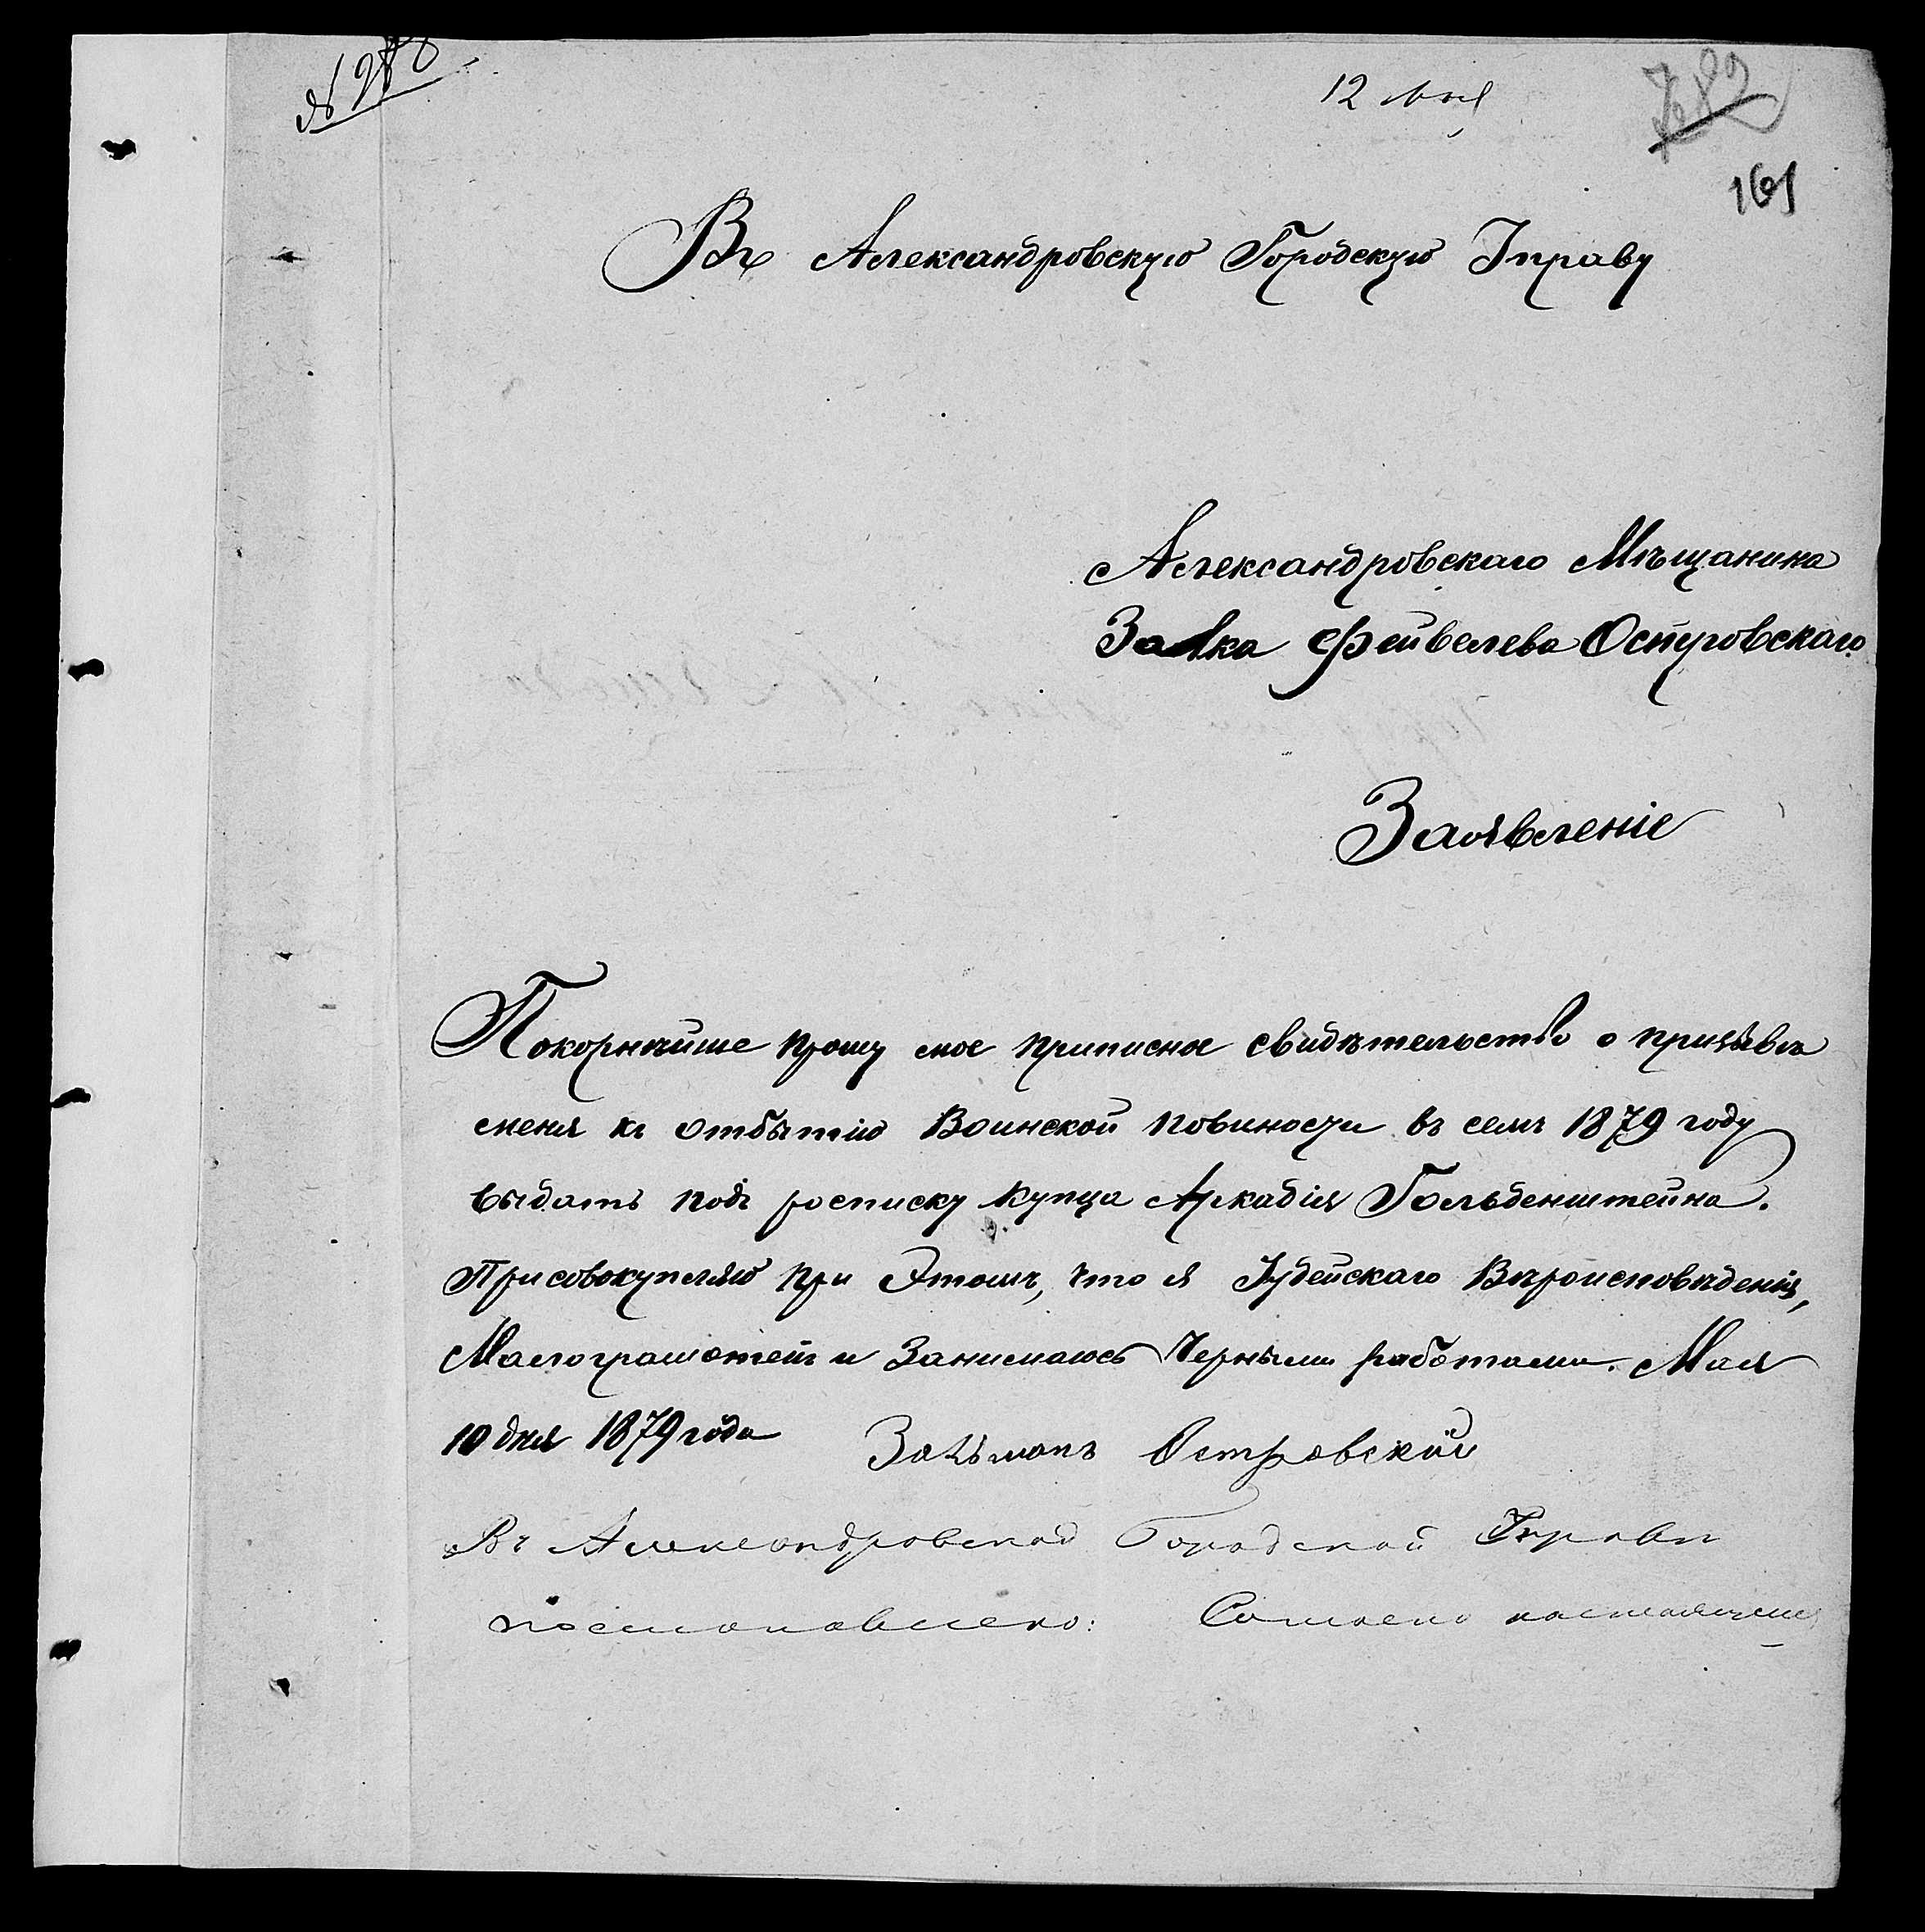 12 мая
782
161
Въ Александровскую Городскую Управу
Александровскаго Мѣщанина
Залка Фейвелева Островскаго
Заявленіе
Покорнѣйше прошу мое приписное свидѣтельство о призывѣ
меня къ отбытію Воинской повиности въ семъ 1879 году
выдать подъ росписку купца Аркадія Гольденштейна.
Присовокупляю при Этомъ, что я Іудейскаго Вѣроисповѣденія,
Малограмотенъ и Занимаюсь Черными работами. Мая
10 дня 1879 года Зальманъ Островскій
Въ Александровской Городской Управѣ
постановлено: Согласно настоящему